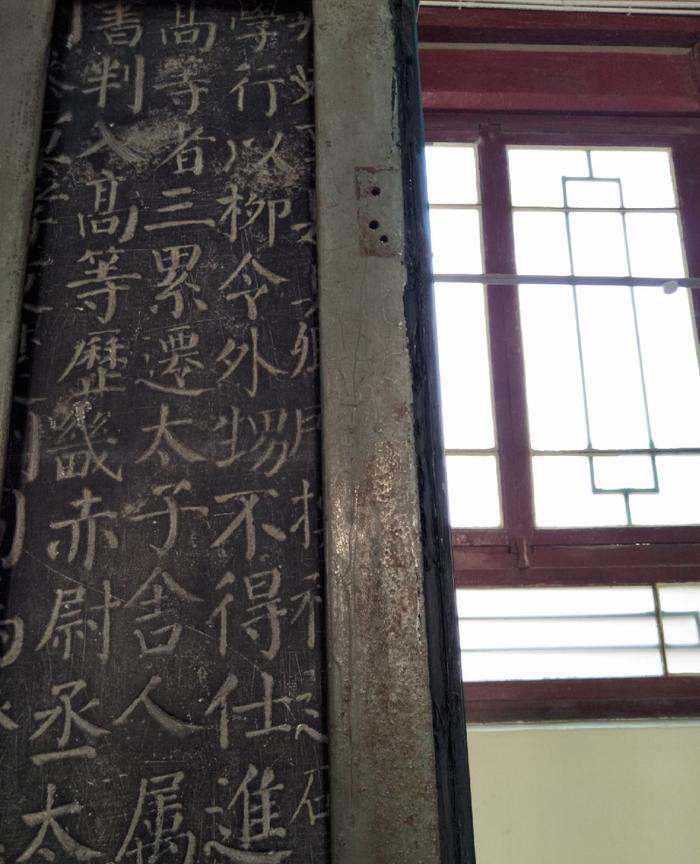 學行以柳令外甥不得仕進
髙等者三累遷太子舍人属
書判入髙等歷畿赤尉丞太